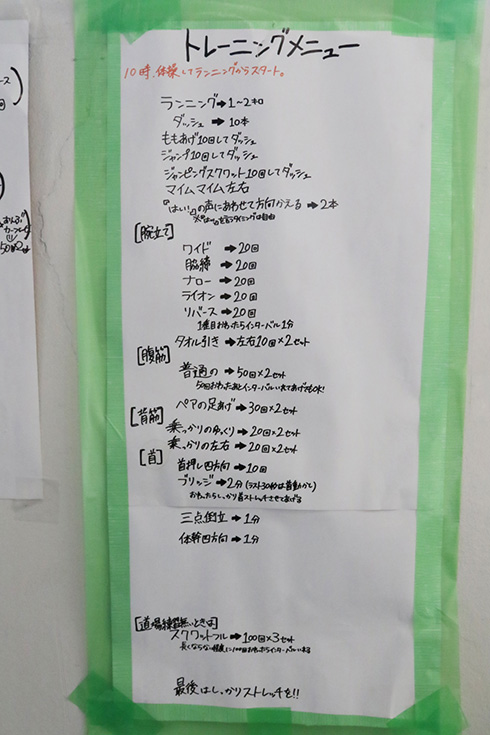 トレーニングメニュー
10時、体操してランニングからスタート。
ランニング→1~2キロ
ダッシュ→10本
ももあげ10回してダッシュ
ジャンプ10回してダッシュ
ジャンピングスクワット10回してダッシュ
マイム、マイム、左右
『はい!』の声にあわせて方向かえる→2本
※『はい』を言うタイミングは自由
[腕立て]
ワイド→20回
脇締→20回
ナロー→20回
ライオン→20回
リバース→20回
1種目おわったらインターバル1分
タオル引き→左右10回×2セット
[腹筋]
普通の→50回×2セット
50回おわったあとインターバルいれてあげてもOK!
[背筋]
ペアの足あげ→30回×2セット
乗っかりのゆっくり→20回×2セット
乗っかりの左右→20回×2セット
[首]
首押し四方向→10回
ブリッジ→2分(ラスト30秒は首動かす)
おわったらしっかり首ストレッチさせてあげる
三点倒立→1分
体幹四方向→1分
[道場練習無いときは]
スクワットフル→100回×3セット
長くならない程度に100回おわったらインターバルいれる
最後はしっかりストレッチを!!